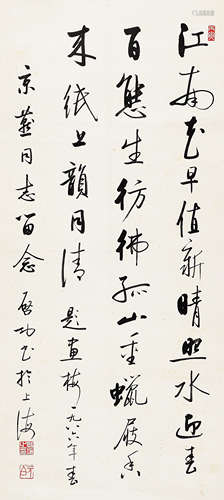 江南花早值新晴照水迎春
百态生彷彿孤山重蠟屐香
来纸上韻同清 题画梅一九六六年春
京燕同志留念 啟功书於上海